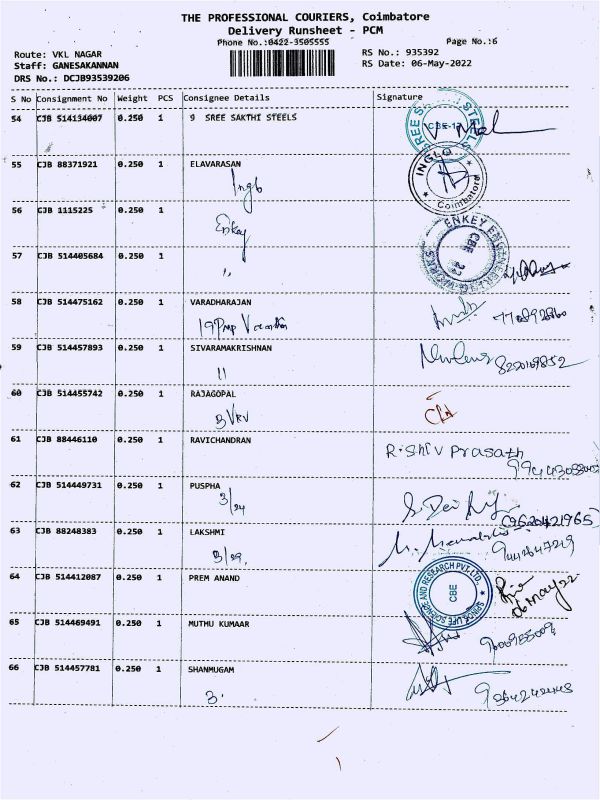 THE PROFESSIONAL COURIERS, Coimbatore
Delivery Runsheet - PCM
Phone No.:0422-3505555 Page No.:6
Route: VKL NAGAR RS No.: 935392
Staff: GANESAKANNAN RS Date: 06-May-2022
DRS No.: DCJB93539206
S No Consignment No Weight PCS Consignee Details Signature
54 CJB 514134007 0.250 1 9 SREE SAKTHI STEELS
CBE-12
55 CJB 88371921 0.250 1 ELAVARASAN
INGLO
Coimbatore
56 CJB 1115225 0.250 1
Enkey
ENKEY
CBE
57 CJB 514405684 0.250 1
"
58 CJB 514475162 0.250 1 VARADHARAJAN
59 CJB 514457893 0.250 1 SIVARAMAKRISHNAN
11 8220169852
60 CJB 514455742 0.250 1 RAJAGOPAL
BVRV
61 CJB 88446110 0.250 1 RAVICHANDRAN
R. Shiv Prasath
62 CJB 514449731 0.250 1 PUSPHA
3/24
63 CJB 88248383 0.250 1 LAKSHMI
3/29. 9442647219
64 CJB 514412087 0.250 1 PREM ANAND
SPICK LIFE SCIENCE AND RESEARCH PVT.LTD.
CBE
06 May 22
65 CJB 514469491 0.250 1 MUTHU KUMAAR
66 CJB 514457781 0.250 1 SHANMUGAM
3.